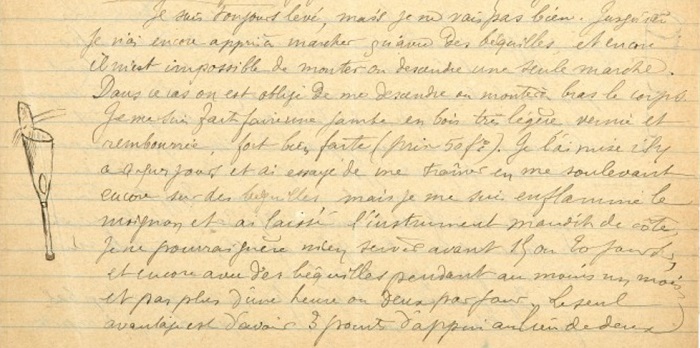 Je suis toujours levé, mais je ne vais pas bien. Jusqu'ici
je n'ai encore appris à marcher qu'avec des béquilles, et encore
il m'est impossible de monter ou descendre une seule marche.
Dans ce cas on est obligé de me descendre ou monter à bras le corps.
Je me suis fait faire une jambe en bois très légère, vernie et
rembourrée, fort bien faite (prix 50 fcs). Je l'ai mise il y
a quelques jours et ai essayé de me traîner en me soulevant
encore sur des béquilles, mais je me suis enflammé le
moignon et ai laissé l'instrument maudit de côté,
Je ne pourrai guère m'en servir avant 15 ou 20 jours,
et encore avec des béquilles pendant au moins un mois,
et pas plus d'une heure ou deux par jour. Le seul
avantage est d'avoir 3 points d'appui au lieu de deux